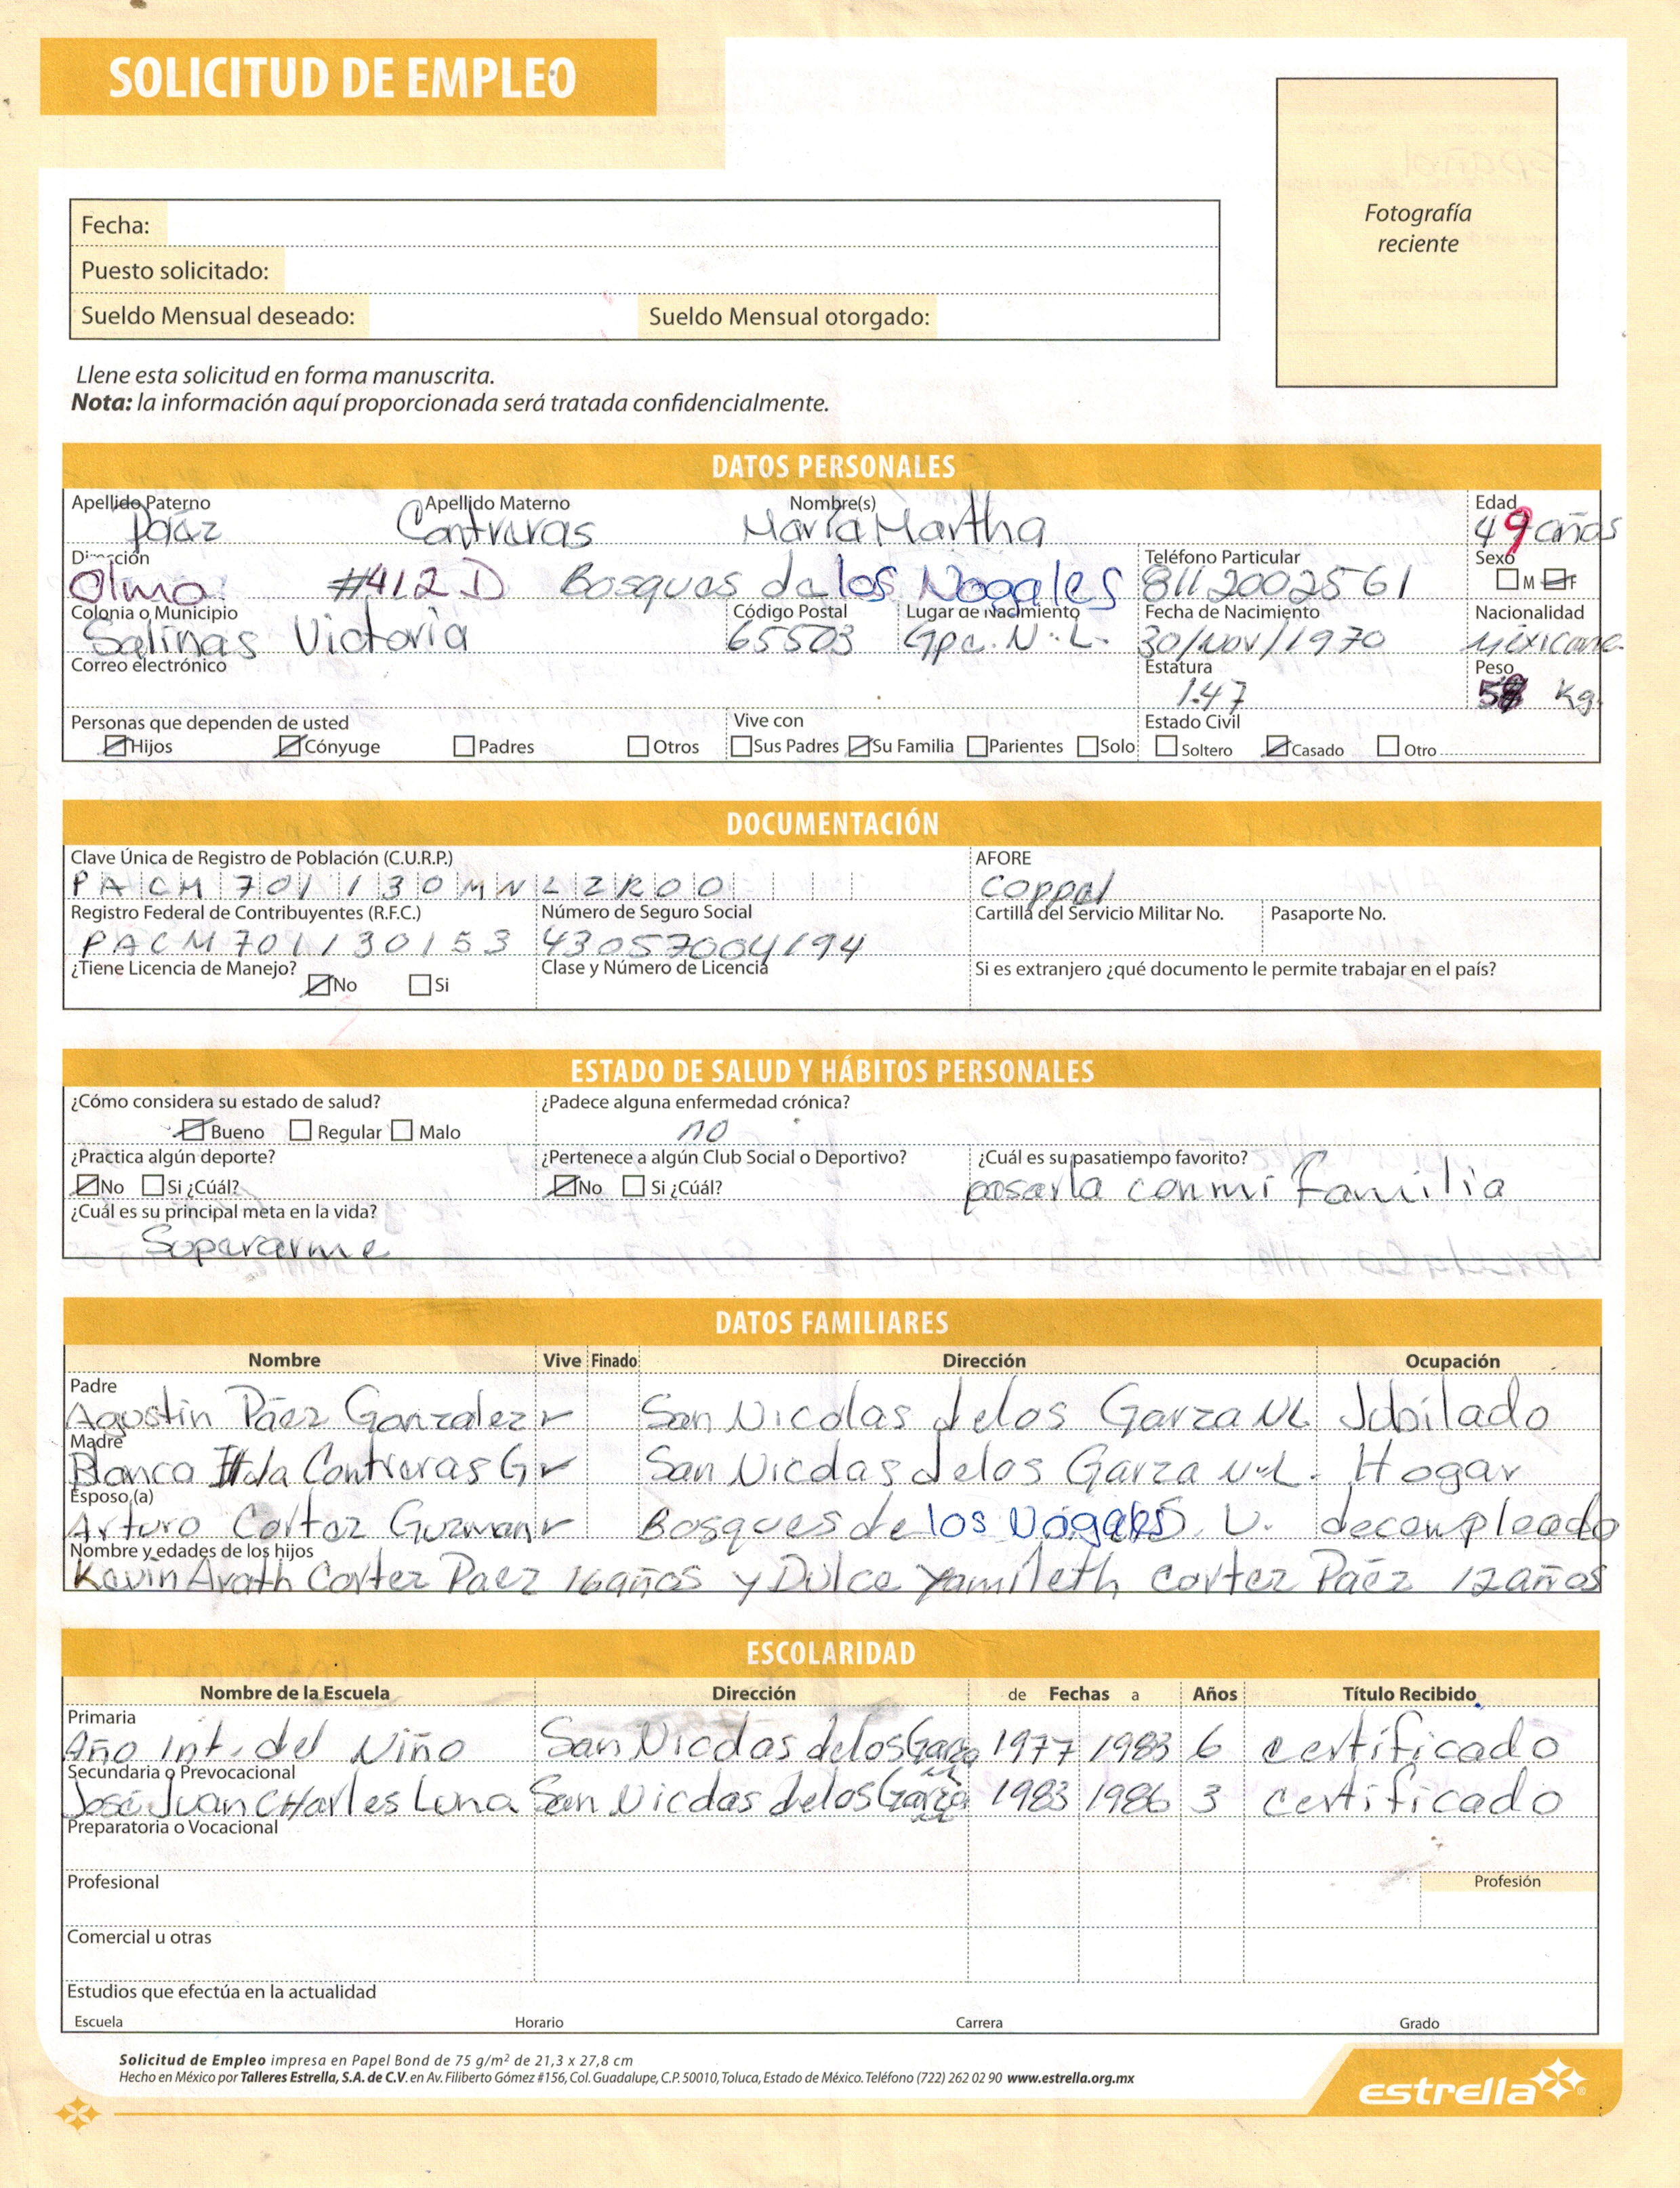 SOLICITUD DE EMPLEO
Fotografía
reciente
Fecha:
Puesto solicitado:
Sueldo Mensual deseado: Sueldo Mensual otorgado:
Llene esta solicitud en forma manuscrita.
Nota: la información aquí proporcionada será tratada confidencialmente.
DATOS PERSONALES
Apellido Paterno Apellido Materno Nombre(s) Edad
Páez Contreras María Martha 49 años
Dirección Teléfono Particular Sexo
Olmo #412 D Bosques de los Nogales 8112002561 M F
Colonia o Municipio Código Postal Lugar de Nacimiento Fecha de Nacimiento Nacionalidad
Salinas Victoria 65503 Gpe. N.L. 30/Nov/1970 Mexicana
Correo electrónico Estatura Peso
1.47 Kg.
Personas que dependen de usted Vive con Estado Civil
Hijos Cónyuge Padres Otros Sus Padres Su Familia Parientes Solo Soltero Casado Otro
DOCUMENTACIÓN
Clave Única de Registro de Población (C.U.R.P.) AFORE
PACM701130MNLZR00 Coppel
Registro Federal de Contribuyentes (R.F.C.) Número de Seguro Social Cartilla del Servicio Militar No. Pasaporte No.
PACM701130153 43057004194
¿Tiene Licencia de Manejo? Clase y Número de Licencia Si es extranjero ¿qué documento le permite trabajar en el país?
No Si
ESTADO DE SALUD Y HÁBITOS PERSONALES
¿Cómo considera su estado de salud? ¿Padece alguna enfermedad crónica?
Bueno Regular Malo no
¿Practica algún deporte? ¿Pertenece a algún Club Social o Deportivo? ¿Cuál es su pasatiempo favorito?
No Si ¿Cúál? No Si ¿Cuál? pasarla con mi familia
¿Cuál es su principal meta en la vida?
Superarme
DATOS FAMILIARES
Nombre Vive Finado Dirección Ocupación
Padre
Agustin Páez Ganzalez San Nicolas delos Garza NL Jubilado
Madre
Blanca Contreras G San Nicolas delos Garza N.L. Hogar
Esposo (a)
Arturo Cortez Guzman Bosques de los Nogales S. V. decempleado
Nombre y edades de los hijos
Kevin Arath Cortez Paez 16 años y Dulce Yamileth Cortez Páez 12 años
ESCOLARIDAD
Nombre de la Escuela Dirección de Fechas a Años Título Recibido
Primaria
Año Int. del Niño San Nicolas delos Garza 1977 1983 6 certificado
Secundaria o Prevocacional
José Juan CHarles Luna San Nicolas delos Garza 1983 1986 3 certificado
Preparatoria o Vocacional
Profesional Profesión
Comercial u otras
Estudios que efectúa en la actualidad
Escuela Horario Carrera Grado
Solicitud de Empleo impresa en Papel Bond de 75 g/m² de 21,3 x 27,8 cm
Hecho en México por Talleres Estrella, S.A. de C.V. en Av. Filiberto Gómez #156, Col. Guadalupe, C.P. 50010, Toluca, Estado de México. Teléfono (722) 262 02 90 www.estrella.org.mx
estrella®